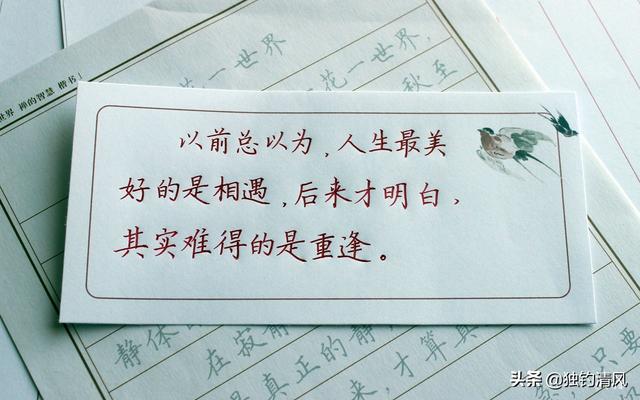 花一世界
花一世界,
秋至
世界 禅的智慧 楷书
以前总以为,人生最美
好的是相遇,后来才明白,
其实难得的是重逢。
静体的
在寂静
是真正的静
来,才算真
只要
头条 @独钓清风